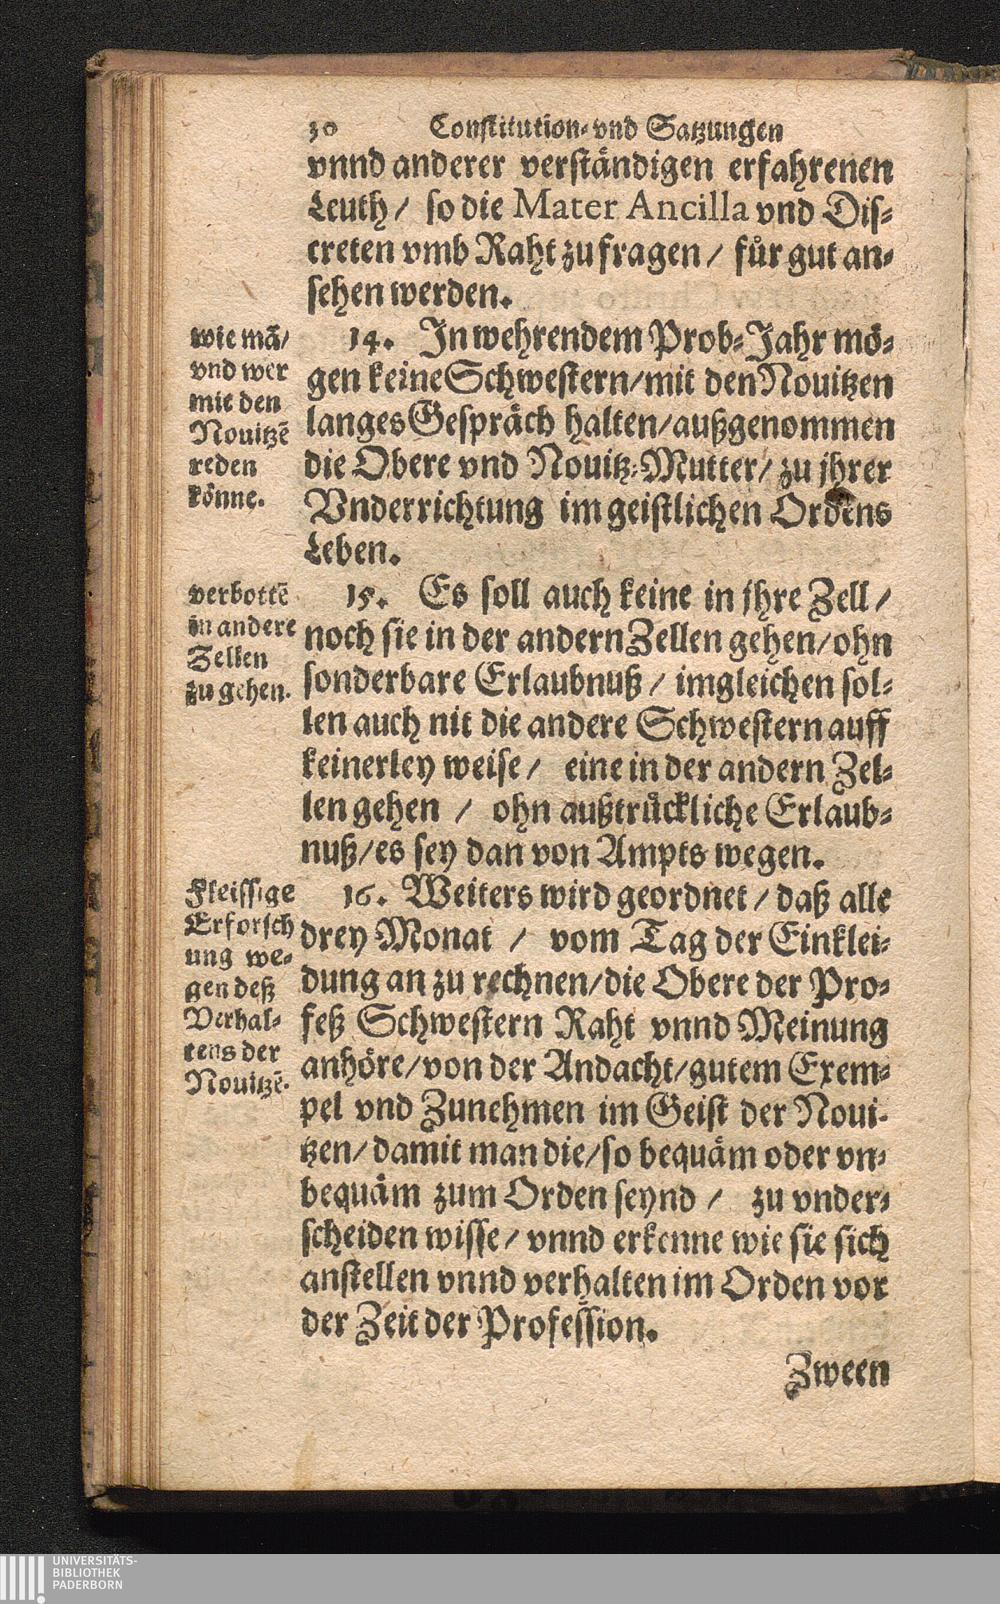 30 Constitution- vnd Satzungen
vnnd anderer verständigen erfahrenen
Leuth / so die Mater Ancilla vnd Dis-
creten vmb Raht zu fragen / für gut an-
sehen werden.
wie mã/
vnd wer
mit den
Nouitzẽ
reden
könne.
14. In wehrendem Prob-Jahr mö-
gen keine Schwestern/mit den Nouitzen
langes Gespräch halten/außgenommen
die Obere vnd Nouitz-Mutter/ zu jhrer
Vnderrichtung im geistlichen Ordens
Leben.
verbottẽ
in andere
Zellen
zu gehen.
15. Es soll auch keine in jhre Zell /
noch sie in der andern Zellen gehen/ohn
sonderbare Erlaubnuß / imgleichen sol-
len auch nit die andere Schwestern auff
keinerley weise / eine in der andern Zel-
len gehen / ohn außtrückliche Erlaub-
nuß/es sey dan von Ampts wegen.
Fleissige
Erforsch
ung we-
gen deß
Verhal-
tens der
Nouitzẽ.
16. Weiters wird geordnet / daß alle
drey Monat / vom Tag der Einklei-
dung an zu rechnen/die Obere der Pro-
feß Schwestern Raht vnnd Meinung
anhöre/von der Andacht/gutem Exem-
pel vnd Zunehmen im Geist der Noui-
tzen/ damit man die/so bequäm oder vn-
bequäm zum Orden seynd / zu vnder-
scheiden wisse/ vnnd erkenne wie sie sich
anstellen vnnd verhalten im Orden vor
der Zeit der Profession.
Zween
UNIVERSITÄTS-
BIBLIOTHEK
PADERBORN